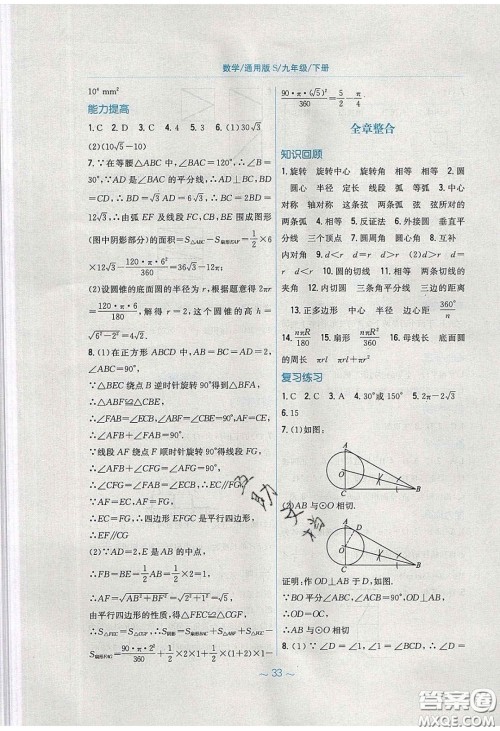 数学/通用版·S/九年级/下册
10⁴ mm²
能力提高
1. C 2. D 3. C 4. 4 5. 3 6. (1)30√3
(2)(10√5-10)
7. ∵在等腰△ABC中,∠BAC=120°,∴∠B=
30°. ∵AD是∠BAC的平分线,∴AD⊥BC,BD=
CD. ∴BD=√3AD=6√3. ∴BC=2BD=12√3.
∴由弧EF及线段FC,CB,BE围成图形
(图中阴影部分)的面积=S△ABC-S扇形EAF=1/2×6
×12√3-(120·π·6²)/360=36√3-12π;
(2)设圆锥的底面圆的半径为r,根据题意得2πr
=(120·π·6)/180,解得r=2,这个圆锥的高h=
√(6²-2²)=4√2.
8. (1)在正方形ABCD中,AB=AD=2,
∠ABC=90°.
∵△BEC绕点B逆时针旋转90°得到△BFA,
∴△ABF≌△CBE.
∴∠FAB=∠ECB,∠ABF=∠CBE=90°.
∴∠AFB+∠FAB=90°.
∵线段AF绕点F顺时针旋转90°得线段FG,
∴∠AFB+∠CFG=∠AFG=90°.
∴∠CFG=∠FAB=∠ECB. ∴EC//FG.
∵AF=EC,AF=FG,
∴EC=FG. ∴四边形EFGC是平行四边形,
∴EF//CG
(2)∵AD=2,E是AB的中点,
∴FB=BE=1/2AB=1/2×2=1.
∴AF=√(AB²+BF²)=√(2²+1²)=√5.
由平行四边形的性质,得△FEC≌△CGF,
∴S△FEC=S△CGF. ∴S阴影=S扇形BAC+S△ABF+S△FGC-
S扇形FAG=(90·π·2²)/360+1/2×2×1+1/2×(1+2)×1-
(90·π·(√5)²)/360=5/2-π/4.
全章整合
知识回顾
1. 旋转 旋转中心 旋转角 相等 相等 2. 圆
圆心 半径 定长 线段 弧 等弧 3. 中心
对称 轴对称 这条弦 两条弧 弦 弦所对的
两条弧 4. 相等 5. 反证法 6. 外接圆 垂直平
分线 三个顶点 7. 圆周角 圆心角 8. 互补
内对角 9. d<r d=r d>r 相交 d=
r d<r 10. 圆的切线 11. 相等 两条切线的
夹角 12. 内切圆 三条角平分线 三边的距离
13. 正多边形 中心 半径 中心角 边心距 360°/n
14. nπR/180 15. 扇形 nπR²/360 16. 母线长 底面圆
的周长 πrl πrl+πr²
复习练习
1. C 2. C 3. A 4. 30°或150° 5. 2π-2√3
6. 15
7. (1)如图:
A
O
C
B
(2)AB与⊙O相切.
A
D
O
C
B
证明:作OD⊥AB于D,如图.
∵BO平分∠ABC,OC⊥BC,OD⊥AB,
∴OD=OC,
∴AB与⊙O相切
8. (1)∵∠D=∠1,∠1=∠BCD,∴∠D=
~ 33 ~
答案圈
MXQE.COM